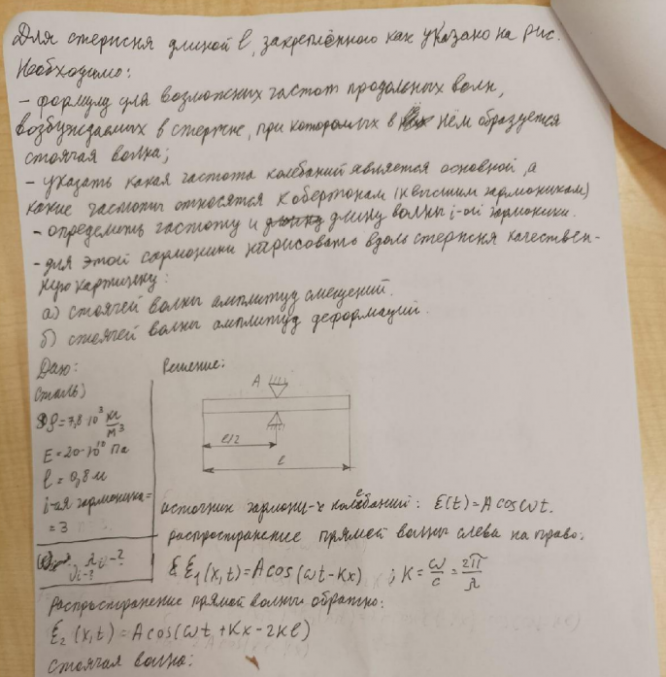 Для стержня длиной l, закреплённого как указано на рис.
Необходимо:
- формулу для возможных частот продольных волн,
возбуждаемых в стержне, при которых в нём образуется
стоячая волна;
- указать какая частота колебаний является основной, а
какие частоты относятся к обертонам (к высшим гармоникам)
- определить частоту и длину волны i-ой гармоники.
- для этой гармоники нарисовать вдоль стержня качествен-
ную картинку:
а) стоячей волны амплитуд смещений.
б) стоячей волны амплитуд деформаций.
Дано:
Сталь)
ρ = 7,8·10³ кг/м³
E = 20·10¹⁰ Па
l = 0,8 м
i-ая гармоника=
= 3
λi-?
νi-?
Решение:
A
l/2
l
источник гармони-х колебаний: ξ(t) = A cos ωt.
распространение прямой волны слева на право:
ξ₁(x,t) = A cos(ωt-kx) ; K = ω/c = 2π/λ
распространение прямой волны обратно:
ξ₂(x,t) = A cos(ωt + Kx - 2Kl)
стоячая волна: